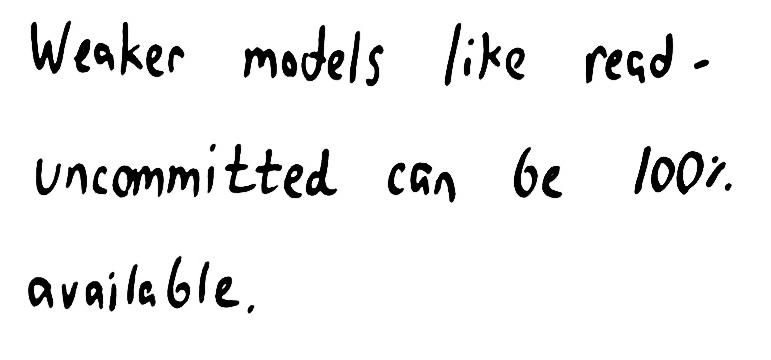 Weaker models like read-
uncommitted can be 100%
available.